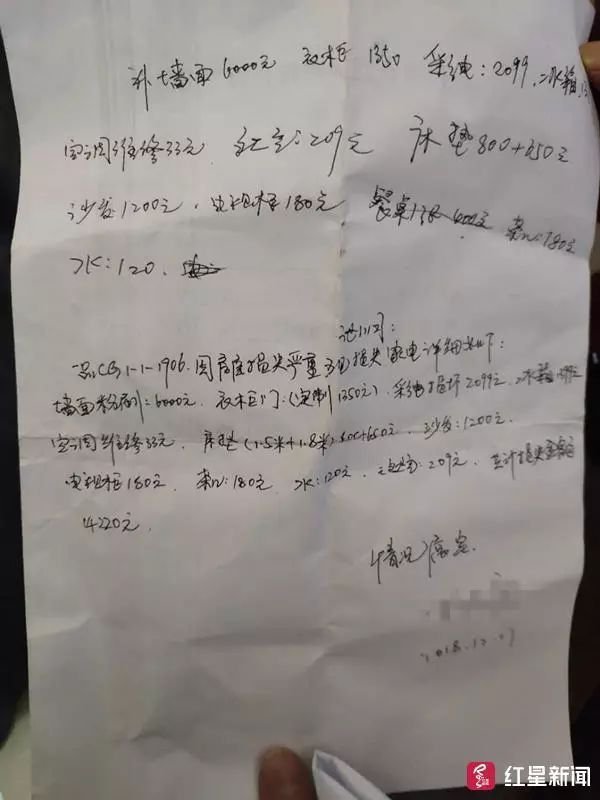 补墙面6000元 衣柜 1350 采电:2099.冰箱
空调维修33元 209元 床垫800+650元
沙发1200元, 电视柜180元 餐桌1张400元 180元
水:120.
说明:
1-1-1906.因房屋损失严重 损失家电详细如下:
墙面粉刷:6000元. 衣柜门:(定制1350元). 损坏2099元.冰箱
空调维修33元. 床垫(1.5米+1.8米)800+650元. 沙发:1200元.
电视柜180元. 180元. 水:120元. 209元. 共计损失金额
14220元.
情况属实.
2018.12.
红星新闻